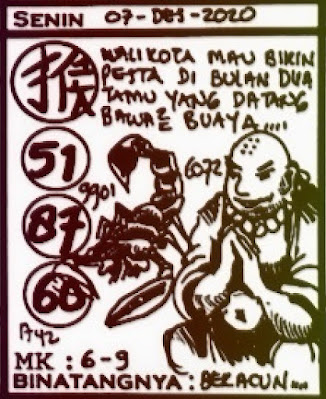 SENIN 07-DES-2020
WALIKOTA MAU BIKIN
PESTA DI BULAN DUA
TAMU YANG DATANG
BAWA BUAYA....
猴
51
9901
6072
87
60
A42
MK : 6-9
BINATANGNYA : BERACUN...